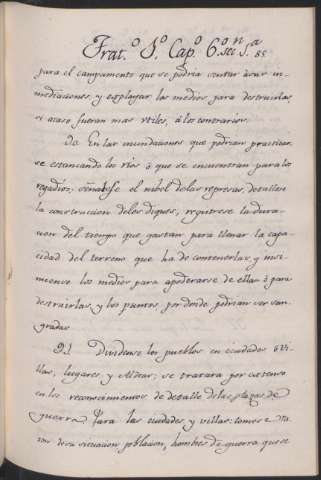 Trat.º 8º Cap.º 6.º sec.n 5.ª 85
para el campamento que se podria contar à sus in-
mediaciones, y explayar los medios para destruirlas,
si acaso fueran mas utiles, á los contrarios.
20. En las inundaciones que podrian practicar
se estancando los rios ó que se encuentran para los
regadios; señalese el nibel de las represas, detallese
la construccion de los diques, registrese la dura-
cion del tiempo que gastan para llenar la capa-
cidad del terreno que ha de contenerlas, y insi-
nuense los medios para apoderarse de ellas ó para
destruirlas, y los puntos, por donde podrian ser san-
gradas
21. Dividense los pueblos en ciudades, Vi-
llas, lugares y Aldeas; se tratara por extenso
en los reconocimientos de detalle de las plazas de
guerra Para las ciudades, y villas tomese ra-
zon de su situacion poblacion, hombres de guerra que se